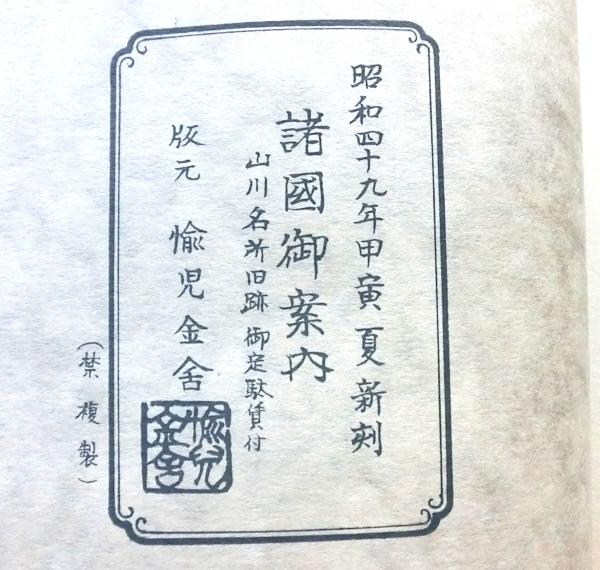 昭和四十九年甲寅夏新刻
諸國御案内
山川名所旧跡 御定駄賃付
版元 愉児金舎
愉兒金舎
(禁複製)